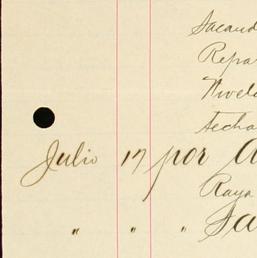 Sacand
Repa
Nivel
techa
Julio 17 por A
Raya
" " " Sa